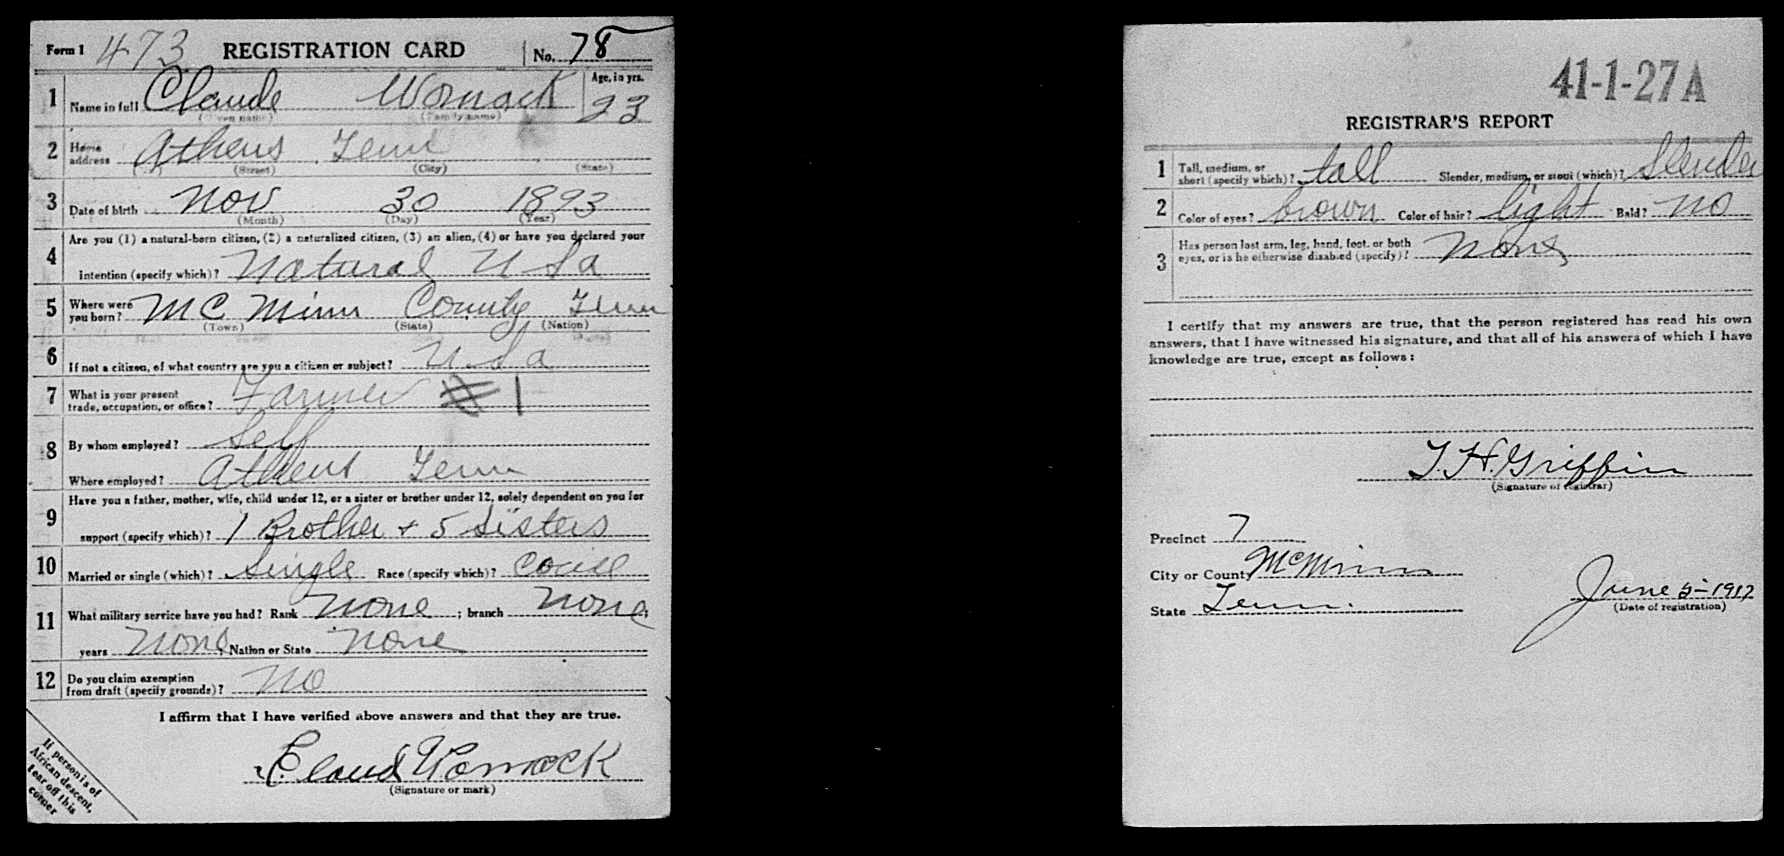 Form 1 473 REGISTRATION CARD No. 78
1 Name in full Claude Womack Age, in yrs. 23
(Given name) (Family name)
2 Home address Athens Tenn
(Street) (City) (State)
3 Date of birth Nov 30 1893
(Month) (Day) (Year)
Are you (1) a natural-born citizen, (2) a naturalized citizen, (3) an alien, (4) or have you declared your
4 intention (specify which)? Natural U S a
5 Where were you born? MC Minn County Tenn
(Town) (State) (Nation)
6 If not a citizen, of what country are you a citizen or subject? U S a
7 What is your present trade, occupation, or office? Farmer # 1
8 By whom employed? Self
Where employed? Athens Tenn
Have you a father, mother, wife, child under 12, or a sister or brother under 12, solely dependent on you for
9 support (specify which)? 1 Brother + 5 Sisters
10 Married or single (which)? Single Race (specify which)?
11 What military service have you had? Rank None ; branch None ;
years None Nation or State None
12 Do you claim exemption from draft (specify grounds)? No
I affirm that I have verified above answers and that they are true.
Claud Womack
(Signature or mark)
If person is of
African descent,
tear off this
corner
41-1-27 A
REGISTRAR'S REPORT
1 Tall, medium, or short (specify which)? tall Slender, medium, or stout (which)? Slender
2 Color of eyes? brown Color of hair? light Bald? No
3 Has person lost arm, leg, hand, foot, or both eyes, or is he otherwise disabled (specify)? None
I certify that my answers are true, that the person registered has read his own
answers, that I have witnessed his signature, and that all of his answers of which I have
knowledge are true, except as follows:
T. H. Griffin
(Signature of registrar)
Precinct 7
City or County McMinn
State Tenn.
June 5-1917
(Date of registration)